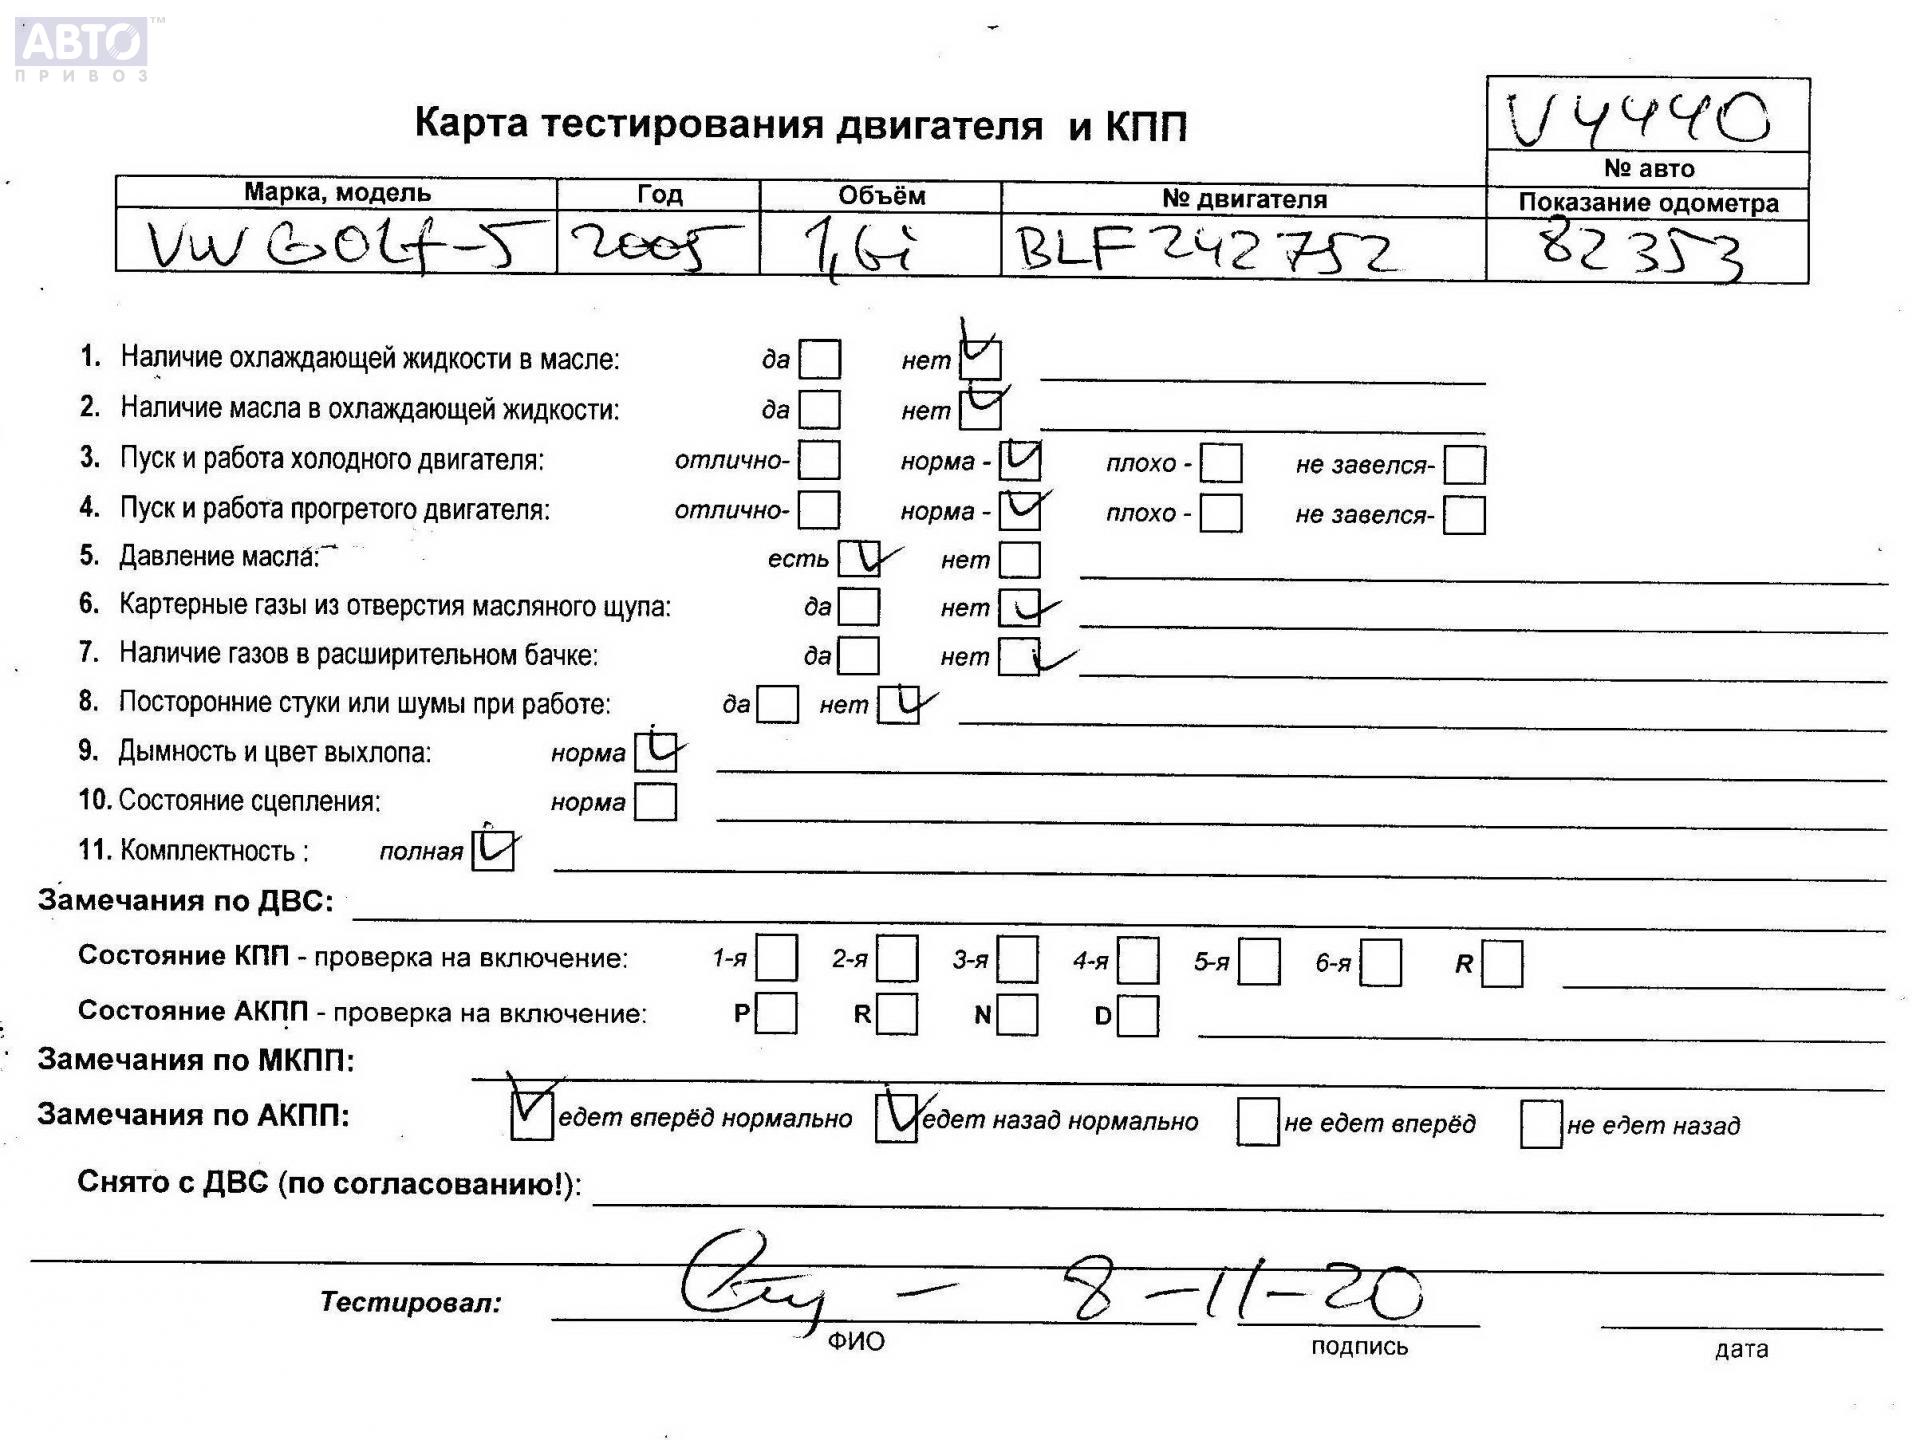 АВТО™
ПРИВОЗ
V4440
Карта тестирования двигателя и КПП
№ авто
Марка, модель Год Объём № двигателя Показание одометра
VW GOLf-5 2005 1,6i BLF 242752 82353
1. Наличие охлаждающей жидкости в масле: да нет
2. Наличие масла в охлаждающей жидкости: да нет
3. Пуск и работа холодного двигателя: отлично- норма - плохо - не завелся-
4. Пуск и работа прогретого двигателя: отлично- норма - плохо - не завелся-
5. Давление масла: есть нет
6. Картерные газы из отверстия масляного щупа: да нет
7. Наличие газов в расширительном бачке: да нет
8. Посторонние стуки или шумы при работе: да нет
9. Дымность и цвет выхлопа: норма
10. Состояние сцепления: норма
11. Комплектность : полная
Замечания по ДВС:
Состояние КПП - проверка на включение: 1-я 2-я 3-я 4-я 5-я 6-я R
Состояние АКПП - проверка на включение: P R N D
Замечания по МКПП:
Замечания по АКПП: едет вперёд нормально едет назад нормально не едет вперёд не едет назад
Снято с ДВС (по согласованию!):
Тестировал: - 8-11-20
ФИО подпись дата